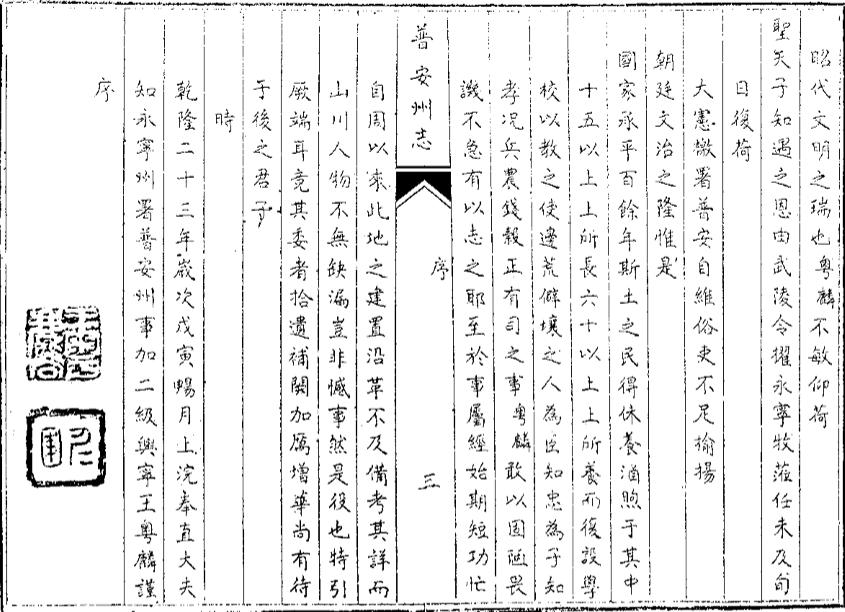 昭代文明之瑞也粵麟不敏仰荷
聖天子知遇之恩由武陵令擢永寧牧蒞任未及旬
日復荷
大憲檄署普安自維俗吏不足揄揚
朝廷文治之隆惟是
國家承平百餘年斯土之民得休養涵煦于其中
十五以上上所長六十以上上所養而後設學
校以教之使邊荒僻壤之人為臣知忠為子知
孝况兵農錢穀正有司之事粵麟敢以固陋畏
譏不急有以志之耶至於事屬經始期短功忙
普安州志
序
三
自周以來此地之建置沿革不及備考其詳而
山川人物不無缺漏豈非憾事然是役也特引
厥端耳竟其委者拾遺補闕加厲增華尚有待
于後之君子
時
乾隆二十三年歲次戊寅暢月上浣奉直大夫
知永寧州署普安州事加二級興寧王粵麟謹
序